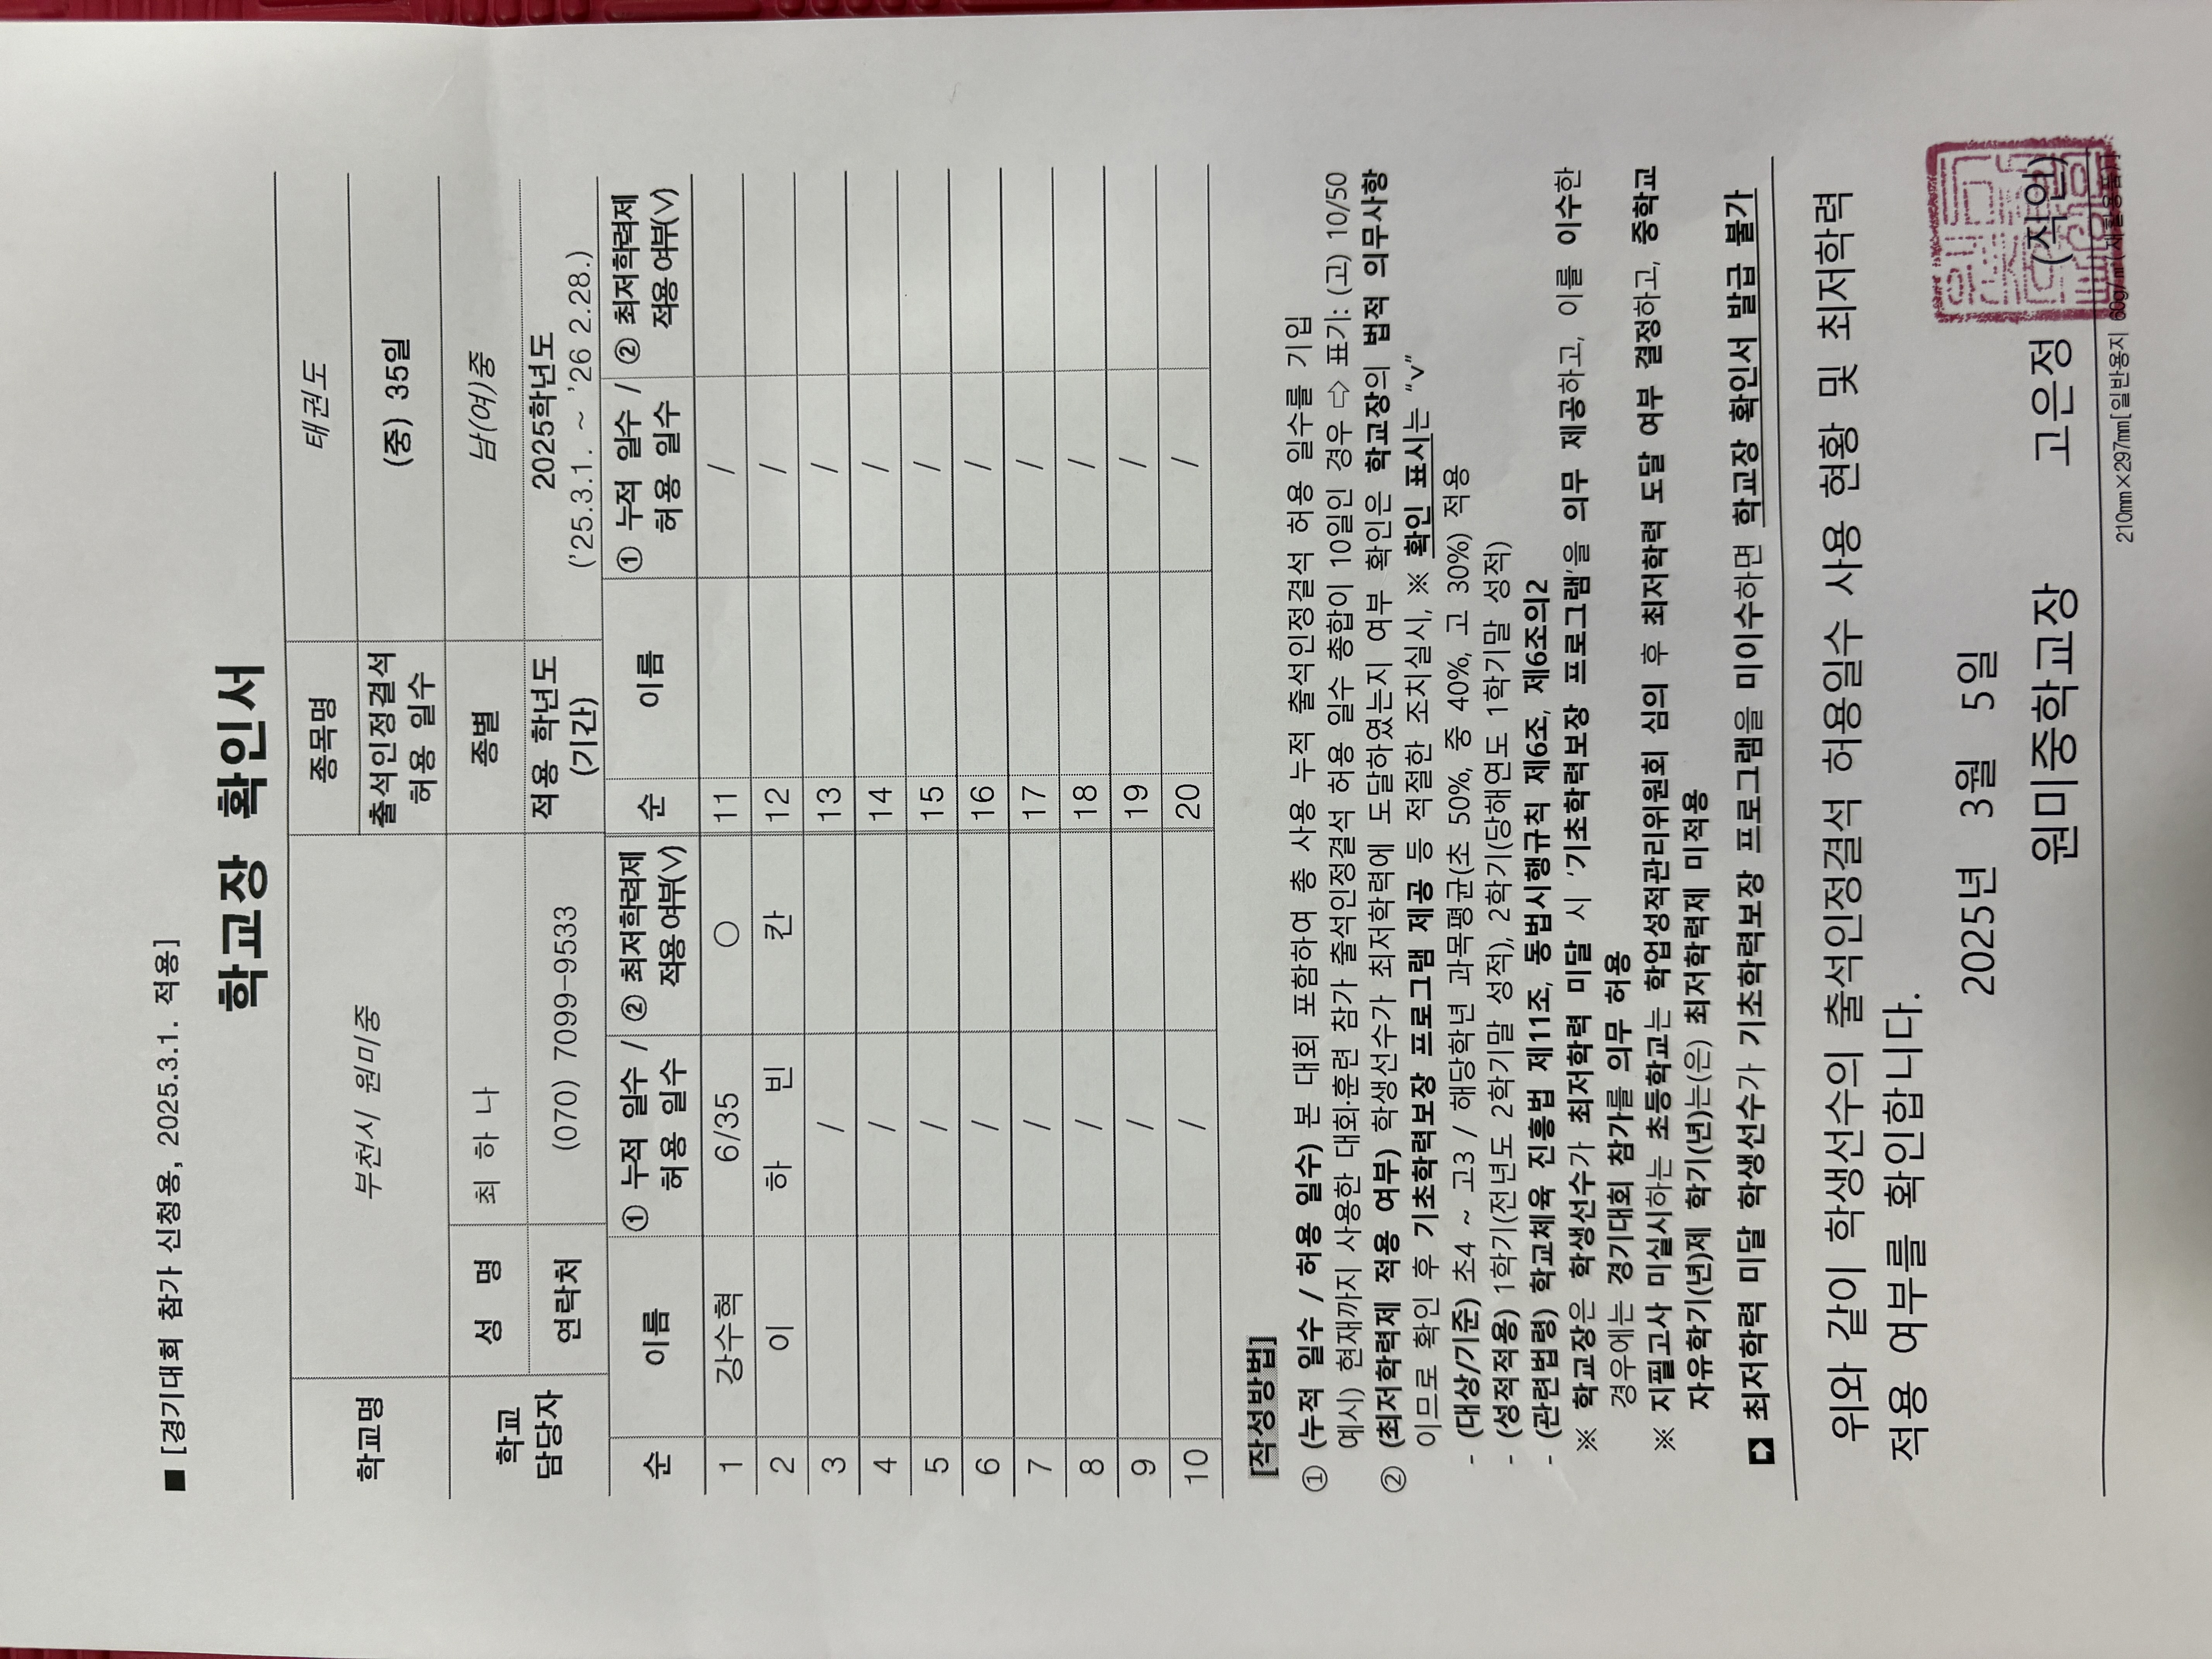 ■ [경기대회 참가 신청용, 2025.3.1. 적용]
학교장 확인서
학교명 부천시 원미중 종목명 태권도
출석인정결석 허용 일수 (중) 35일
학교 담당자 성 명 최 하 나 종별 남(여)중
연락처 (070) 7099-9533 적용 학년도 (기간) 2025학년도 ('25.3.1. ~ '26 2.28.)
순 이름 ① 누적 일수 / 허용 일수 ② 최저학력제 적용여부(V) 순 이름 ① 누적 일수 / 허용 일수 ② 최저학력제 적용여부(V)
1 강수혁 6/35 ○ 11 /
2 이 하 빈 칸 12 /
3 / 13 /
4 / 14 /
5 / 15 /
6 / 16 /
7 / 17 /
8 / 18 /
9 / 19 /
10 / 20 /
[작성방법]
① (누적 일수 / 허용 일수) 본 대회 포함하여 총 사용 누적 출석인정결석 허용 일수를 기입
예시) 현재까지 사용한 대회·훈련 참가 출석인정결석 허용 일수 총합이 10일인 경우 ⇨ 표기: (고) 10/50
② (최저학력제 적용 여부) 학생선수가 최저학력에 도달하였는지 여부 확인은 학교장의 법적 의무사항
이므로 확인 후 기초학력보장 프로그램 제공 등 적절한 조치실시, ※ 확인 표시는 “v”
- (대상/기준) 초4 ~ 고3 / 해당학년 과목평균(초 50%, 중 40%, 고 30%) 적용
- (성적적용) 1학기(전년도 2학기말 성적), 2학기(당해연도 1학기말 성적)
- (관련법령) 학교체육 진흥법 제11조, 동법시행규칙 제6조, 제6조의2
※ 학교장은 학생선수가 최저학력 미달 시 '기초학력보장 프로그램'을 의무 제공하고, 이를 이수한
경우에는 경기대회 참가를 의무 허용
※ 지필고사 미실시하는 초등학교는 학업성적관리위원회 심의 후 최저학력 도달 여부 결정하고, 중학교
자유학기(년)제 학기(년)는(은) 최저학력제 미적용
➡ 최저학력 미달 학생선수가 기초학력보장 프로그램을 미이수하면 학교장 확인서 발급 불가
위와 같이 학생선수의 출석인정결석 허용일수 사용 현황 및 최저학력
적용 여부를 확인합니다.
2025년 3월 5일
원미중학교장 고은정 (직인)
210㎜×297㎜[일반용지 60g/㎡(재활용품)]